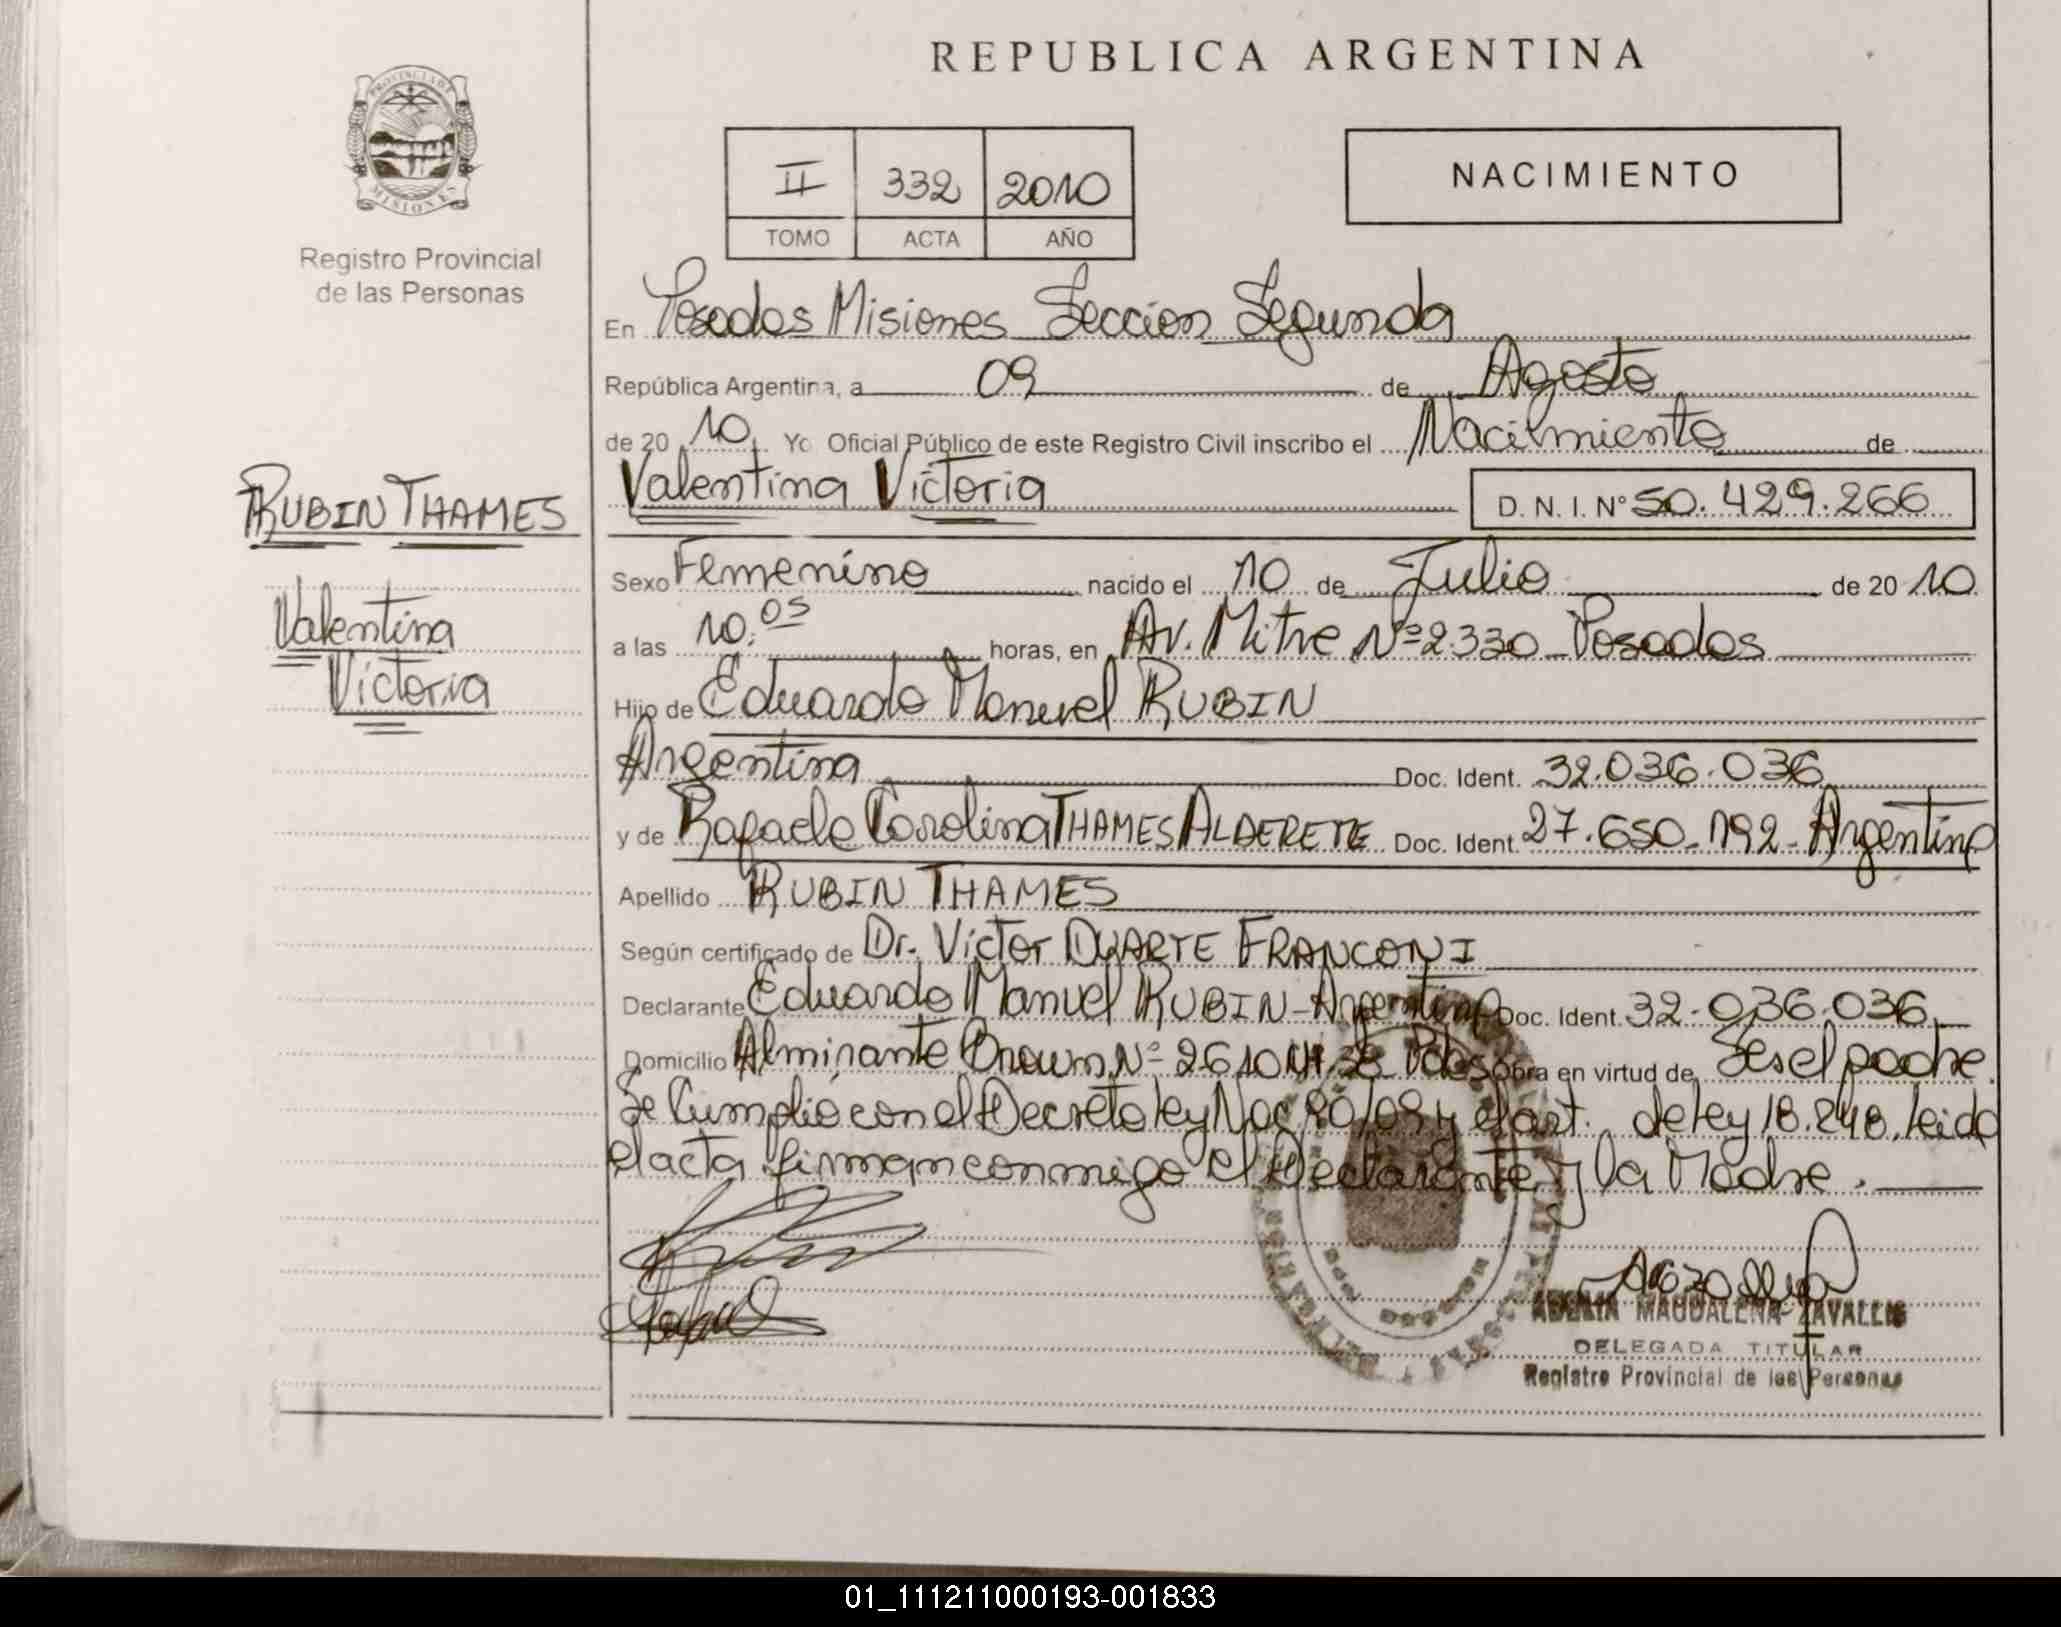 REPUBLICA ARGENTINA
PROVINCIA DE
MISIONES
Registro Provincial
de las Personas
II 332 2010
TOMO ACTA AÑO
NACIMIENTO
En Posadas Misiones Seccion Segunda
República Argentina, a 09 de Agosto
de 20 10 Yo Oficial Público de este Registro Civil inscribo el Nacimiento de
Valentina Victoria D. N. I. Nº 50.429.266
RUBIN THAMES
Valentina
Victoria
Sexo Femenino nacido el 10 de Julio de 20 10
a las 10:05 horas, en Av. Mitre Nº 2330 Posadas
Hijo de Eduardo Manuel RUBIN
Argentina Doc. Ident. 32.036.036
y de Rafaela Carolina THAMES ALDERETE Doc. Ident. 27.650.192 - Argentina
Apellido RUBIN THAMES
Según certificado de Dr. Victor DUARTE FRANCONI
Declarante Eduardo Manuel RUBIN - Argentina Doc. Ident. 32.036.036
Domicilio Almirante Brown Nº 2610 Obra en virtud de Ser el padre
Se Cumplio con el Decreto ley Nac y el art. de ley 18.248. leida
el acta firman conmigo el Declarante y la Madre.
ADELIA MAGDALENA ZAVALLIS
DELEGADA TITULAR
Registro Provincial de las Personas
01_111211000193-001833